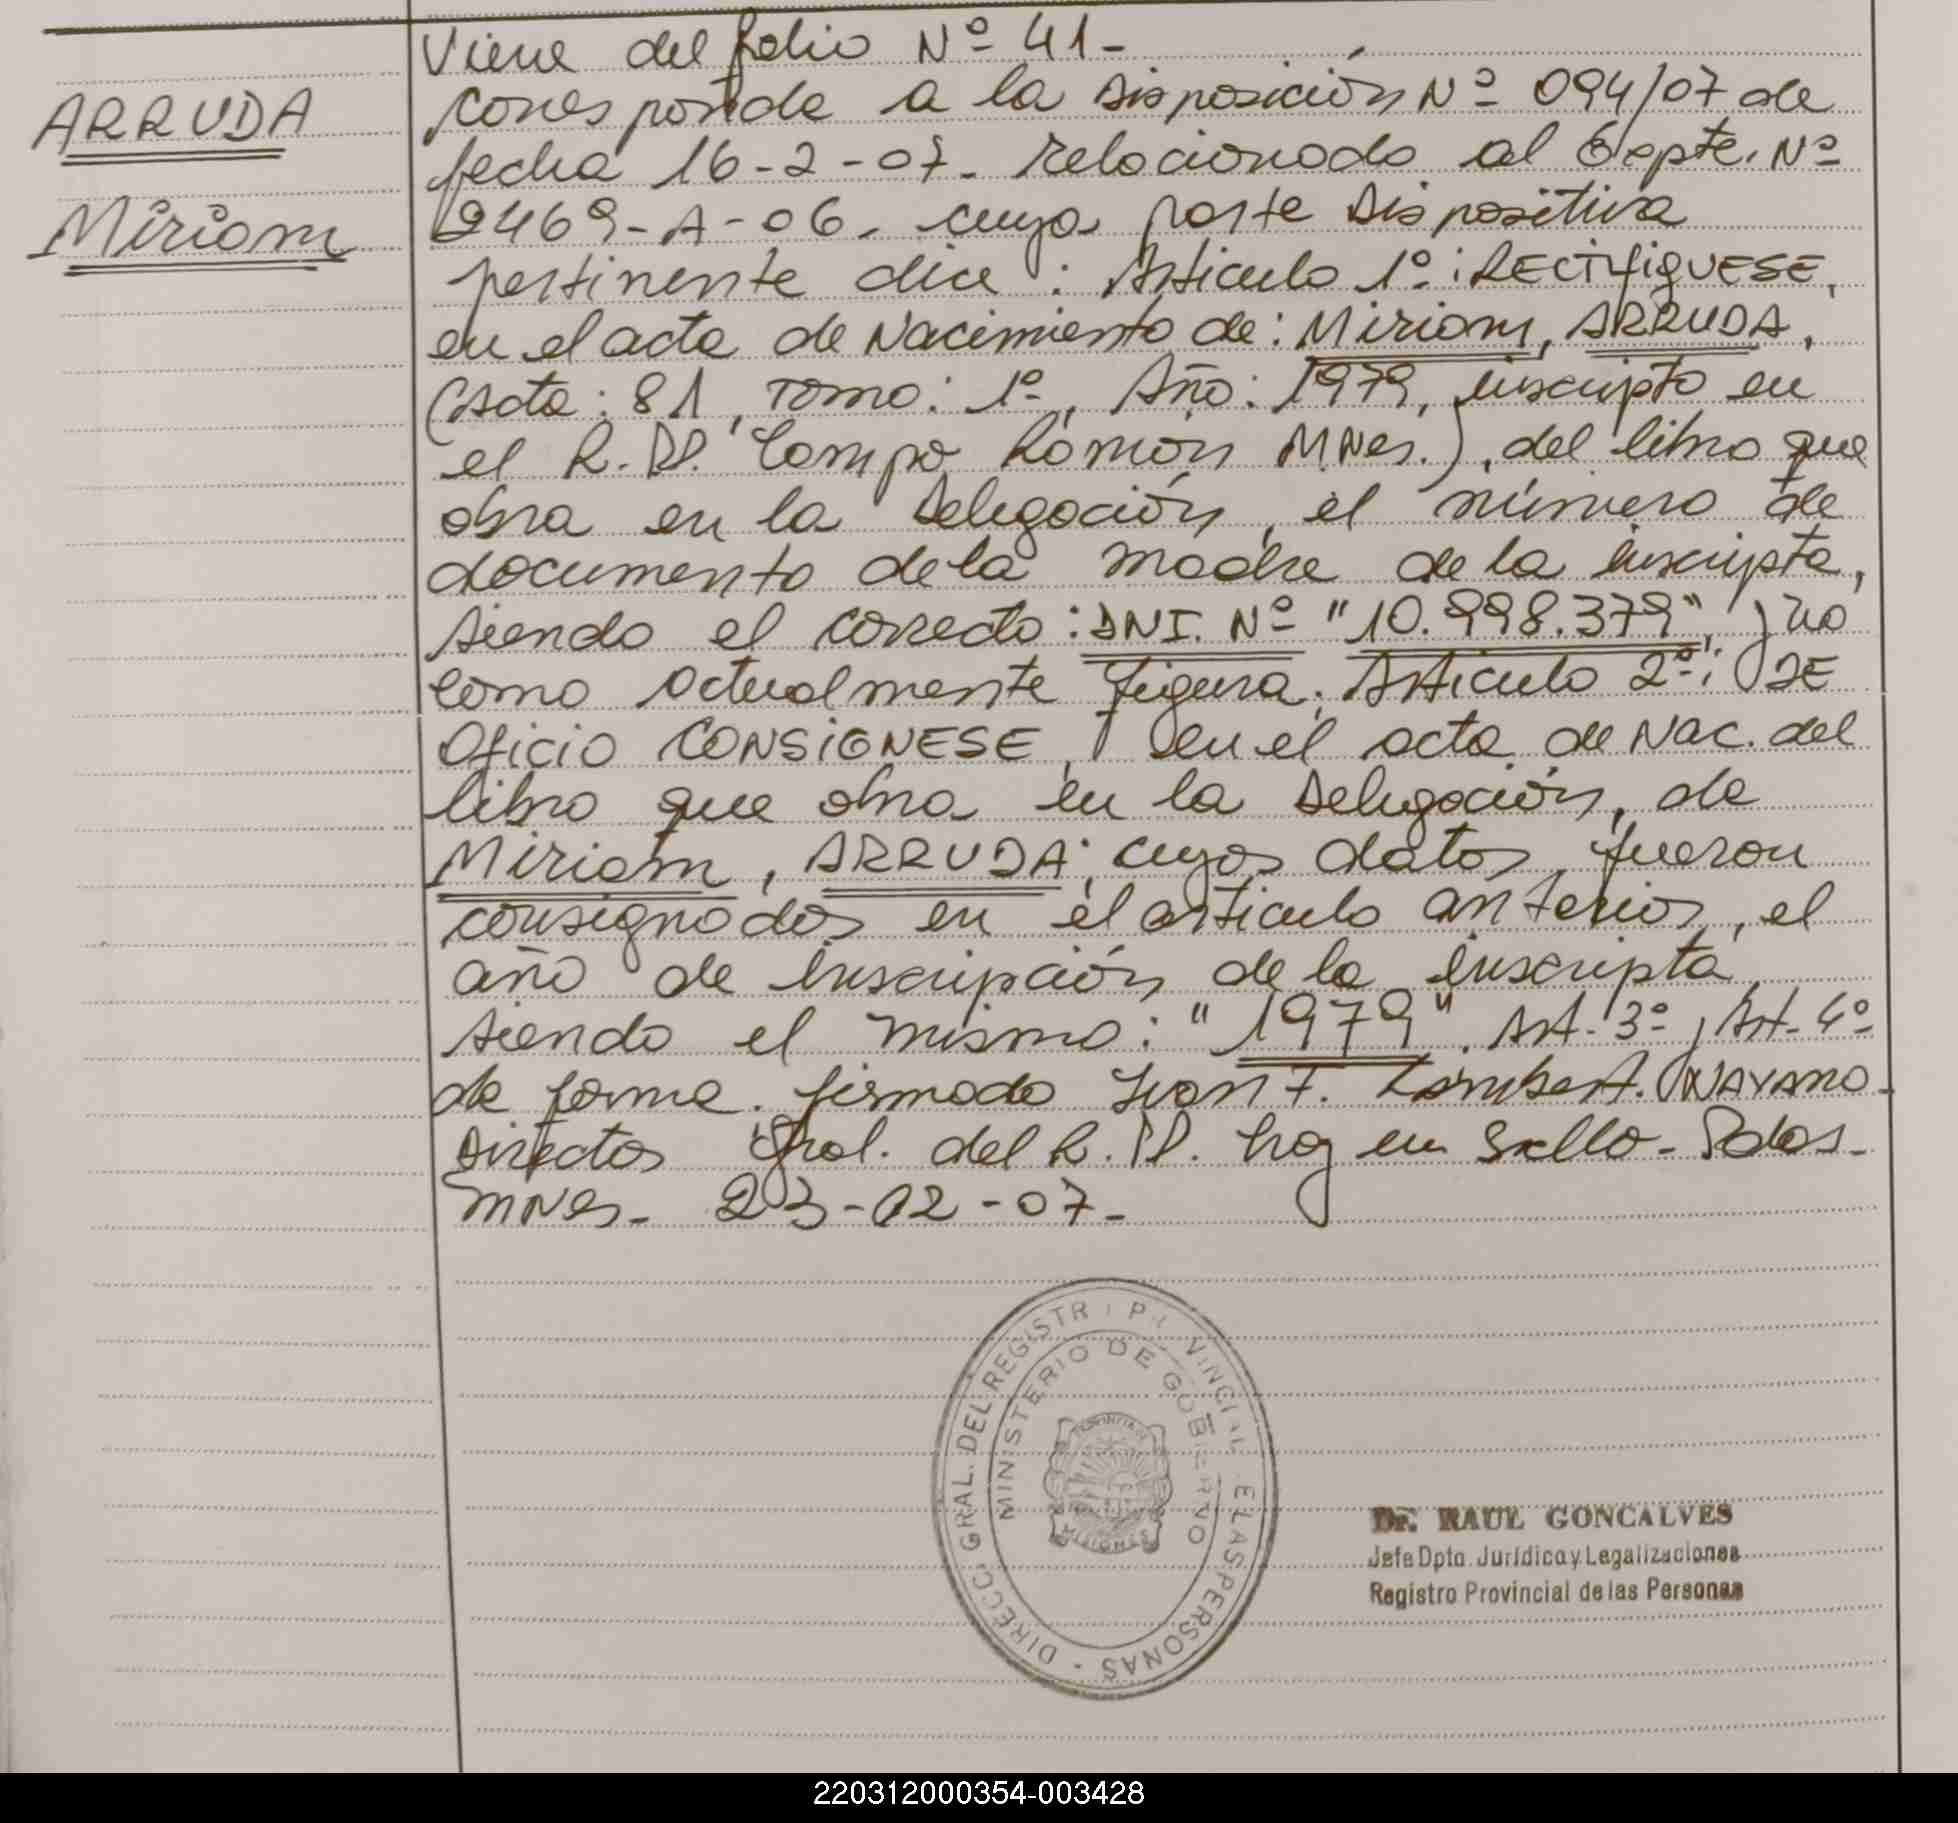 ARRUDA
Miriam
Viene del folio Nº 41-
corresponde a la Disposición Nº 094/07 de
fecha 16-2-07. relacionado al Expte. Nº
9469-A-06. cuya parte Dispositiva
pertinente dice: Articulo 1º: RECTIFIQUESE,
en el acta de Nacimiento de: Miriam, ARRUDA,
(Acta: 81, Tomo: 1º, Año: 1979, inscripto en
el R.PP. Campo Ramón MNes.), del libro que
obra en la Delegación, el número de
documento de la madre de la inscripta,
siendo el correcto: DNI. Nº "10.998.379", y no
como actualmente figura. Articulo 2º: DE
Oficio CONSIGNESE, en el acta de Nac. del
libro que obra en la Delegación, de
Miriam, ARRUDA; cuyos datos fueron
consignados en el articulo anterior, el
año de inscripción de la inscripta
siendo el mismo: "1979". Art. 3º y Art. 4º
de forma. firmado Juan F. Lambert. NAVARRO-
Director Gral. del R.PP. hay un sello- Pdas.
MNes- 23-02-07-
DIRECC. GRAL. DEL REGISTR PR VINCIAL E LAS PERSONAS -
MINISTERIO DE GOBIERNO
PROVINCIA DE
MISIONES
Dr. RAUL GONCALVES
Jefe Dpto. Jurídico y Legalizaciones
Registro Provincial de las Personas
220312000354-003428